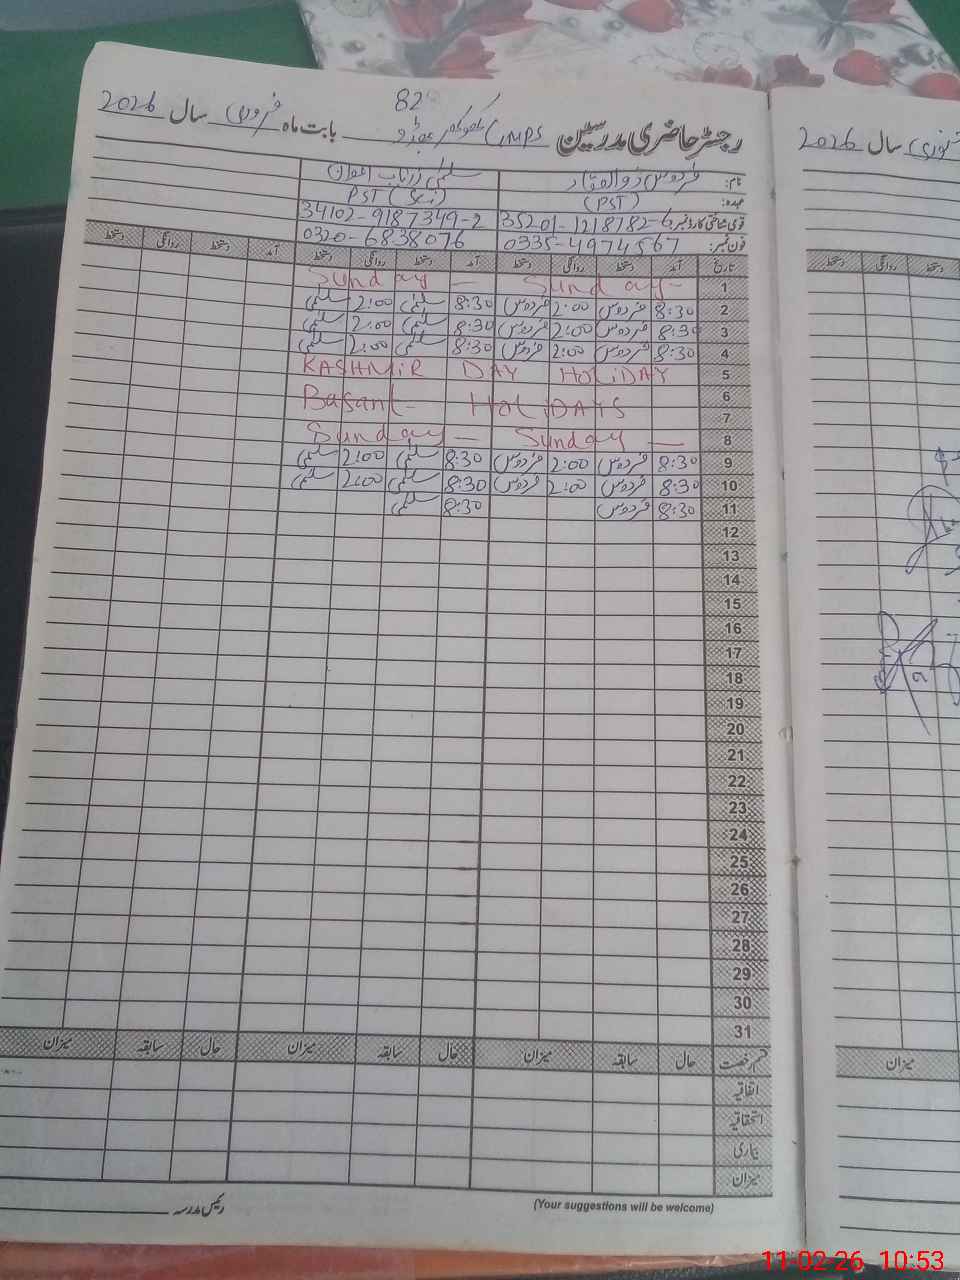 رجسٹر حاضری مدرسین GMPS بابت ماہ فروری سال 2026
82
نام: فردوس ذوالفقار سلمیٰ
عہدہ: (PST) PST (
قومی شناختی کارڈ نمبر 35201-1218782-6 34102-9187349-2
فون نمبر: 0335-4974567 0320-6838076
تاریخ آمد دستخط روانگی دستخط آمد دستخط روانگی دستخط آمد دستخط روانگی دستخط
1 Sunday - Sunday -
2 8:30 فردوس 2:00 فردوس 8:30 سلمیٰ 2:00 سلمیٰ
3 8:30 فردوس 2:00 فردوس 8:30 سلمیٰ 2:00 سلمیٰ
4 8:30 فردوس 2:00 فردوس 8:30 سلمیٰ 2:00 سلمیٰ
5 KASHMIR DAY HOLIDAY
6 Basant - HOLIDAYS
7
8 Sunday - Sunday -
9 8:30 فردوس 2:00 فردوس 8:30 سلمیٰ 2:00 سلمیٰ
10 8:30 فردوس 2:00 فردوس 8:30 سلمیٰ 2:00 سلمیٰ
11 8:30 فردوس 8:30 سلمیٰ
12
13
14
15
16
17
18
19
20
21
22
23
24
25
26
27
28
29
30
31
قسم رخصت حال سابقہ میزان حال سابقہ میزان حال سابقہ میزان
اتفاقیہ
استحقاقیہ
بیماری
میزان
رئیس مدرسہ
(Your suggestions will be welcome)
جنوری سال 2026
دستخط روانگی دستخط
میزان
11-02-26 10:53